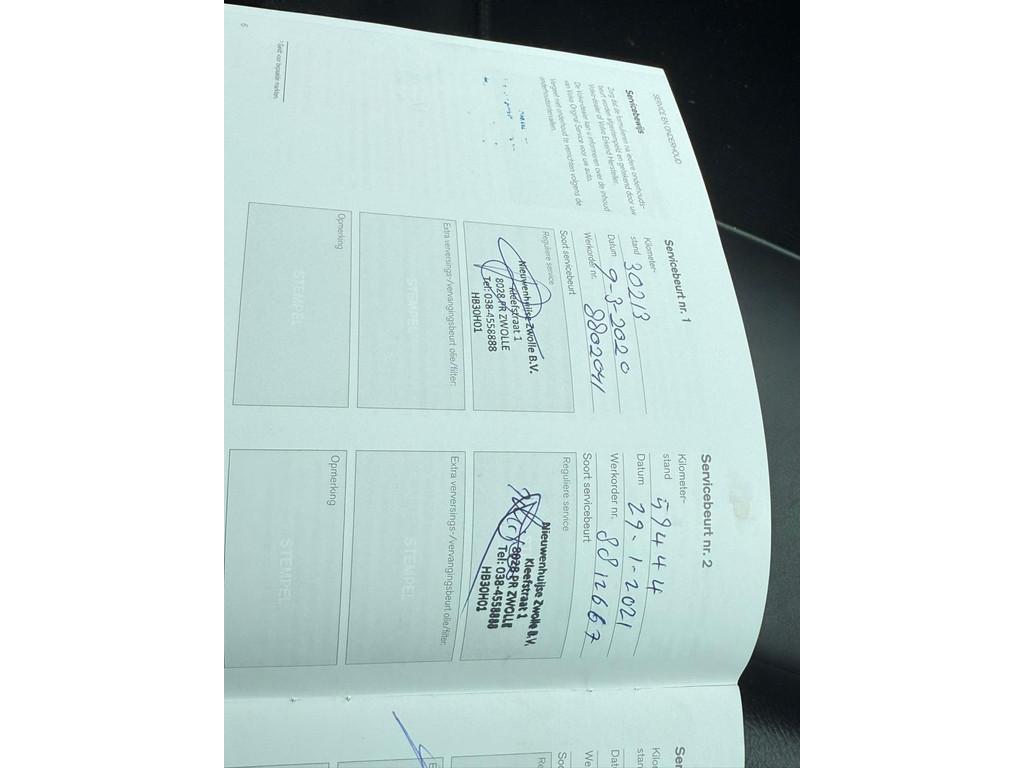 SERVICE EN ONDERHOUD
Servicebewijs
Zorg dat de formulieren na iedere onderhouds-
beurt worden afgestempeld en getekend door uw
Volvo-dealer of Volvo Erkend Hersteller.
De Volvo-dealer kan u informeren over de inhoud
van Volvo Original Service voor uw auto.
Vergeet niet onderhoud te verrichten volgens de
onderhoudsintervallen.
* Geldt voor bepaalde markten.
6
Servicebeurt nr. 1
Kilometer-
stand 30213
Datum 9-3-2020
Werkorder nr. 8802041
Soort servicebeurt
Reguliere service
Nieuwenhuijse Zwolle B.V.
Kleefstraat 1
8028 PR ZWOLLE
Tel: 038-4558888
HB30H01
Extra verversings-/vervangingsbeurt olie/filter:
STEMPEL
Opmerking
STEMPEL
Servicebeurt nr. 2
Kilometer-
stand 59444
Datum 29-1-2021
Werkorder nr. 8812667
Soort servicebeurt
Reguliere service
Nieuwenhuijse Zwolle B.V.
Kleefstraat 1
8028 PR ZWOLLE
Tel: 038-4558888
HB30H01
Extra verversings-/vervangingsbeurt olie/filter:
STEMPEL
Opmerking
STEMPEL
Ser
Kilo
stan
Dat
We
Soo
Re
E